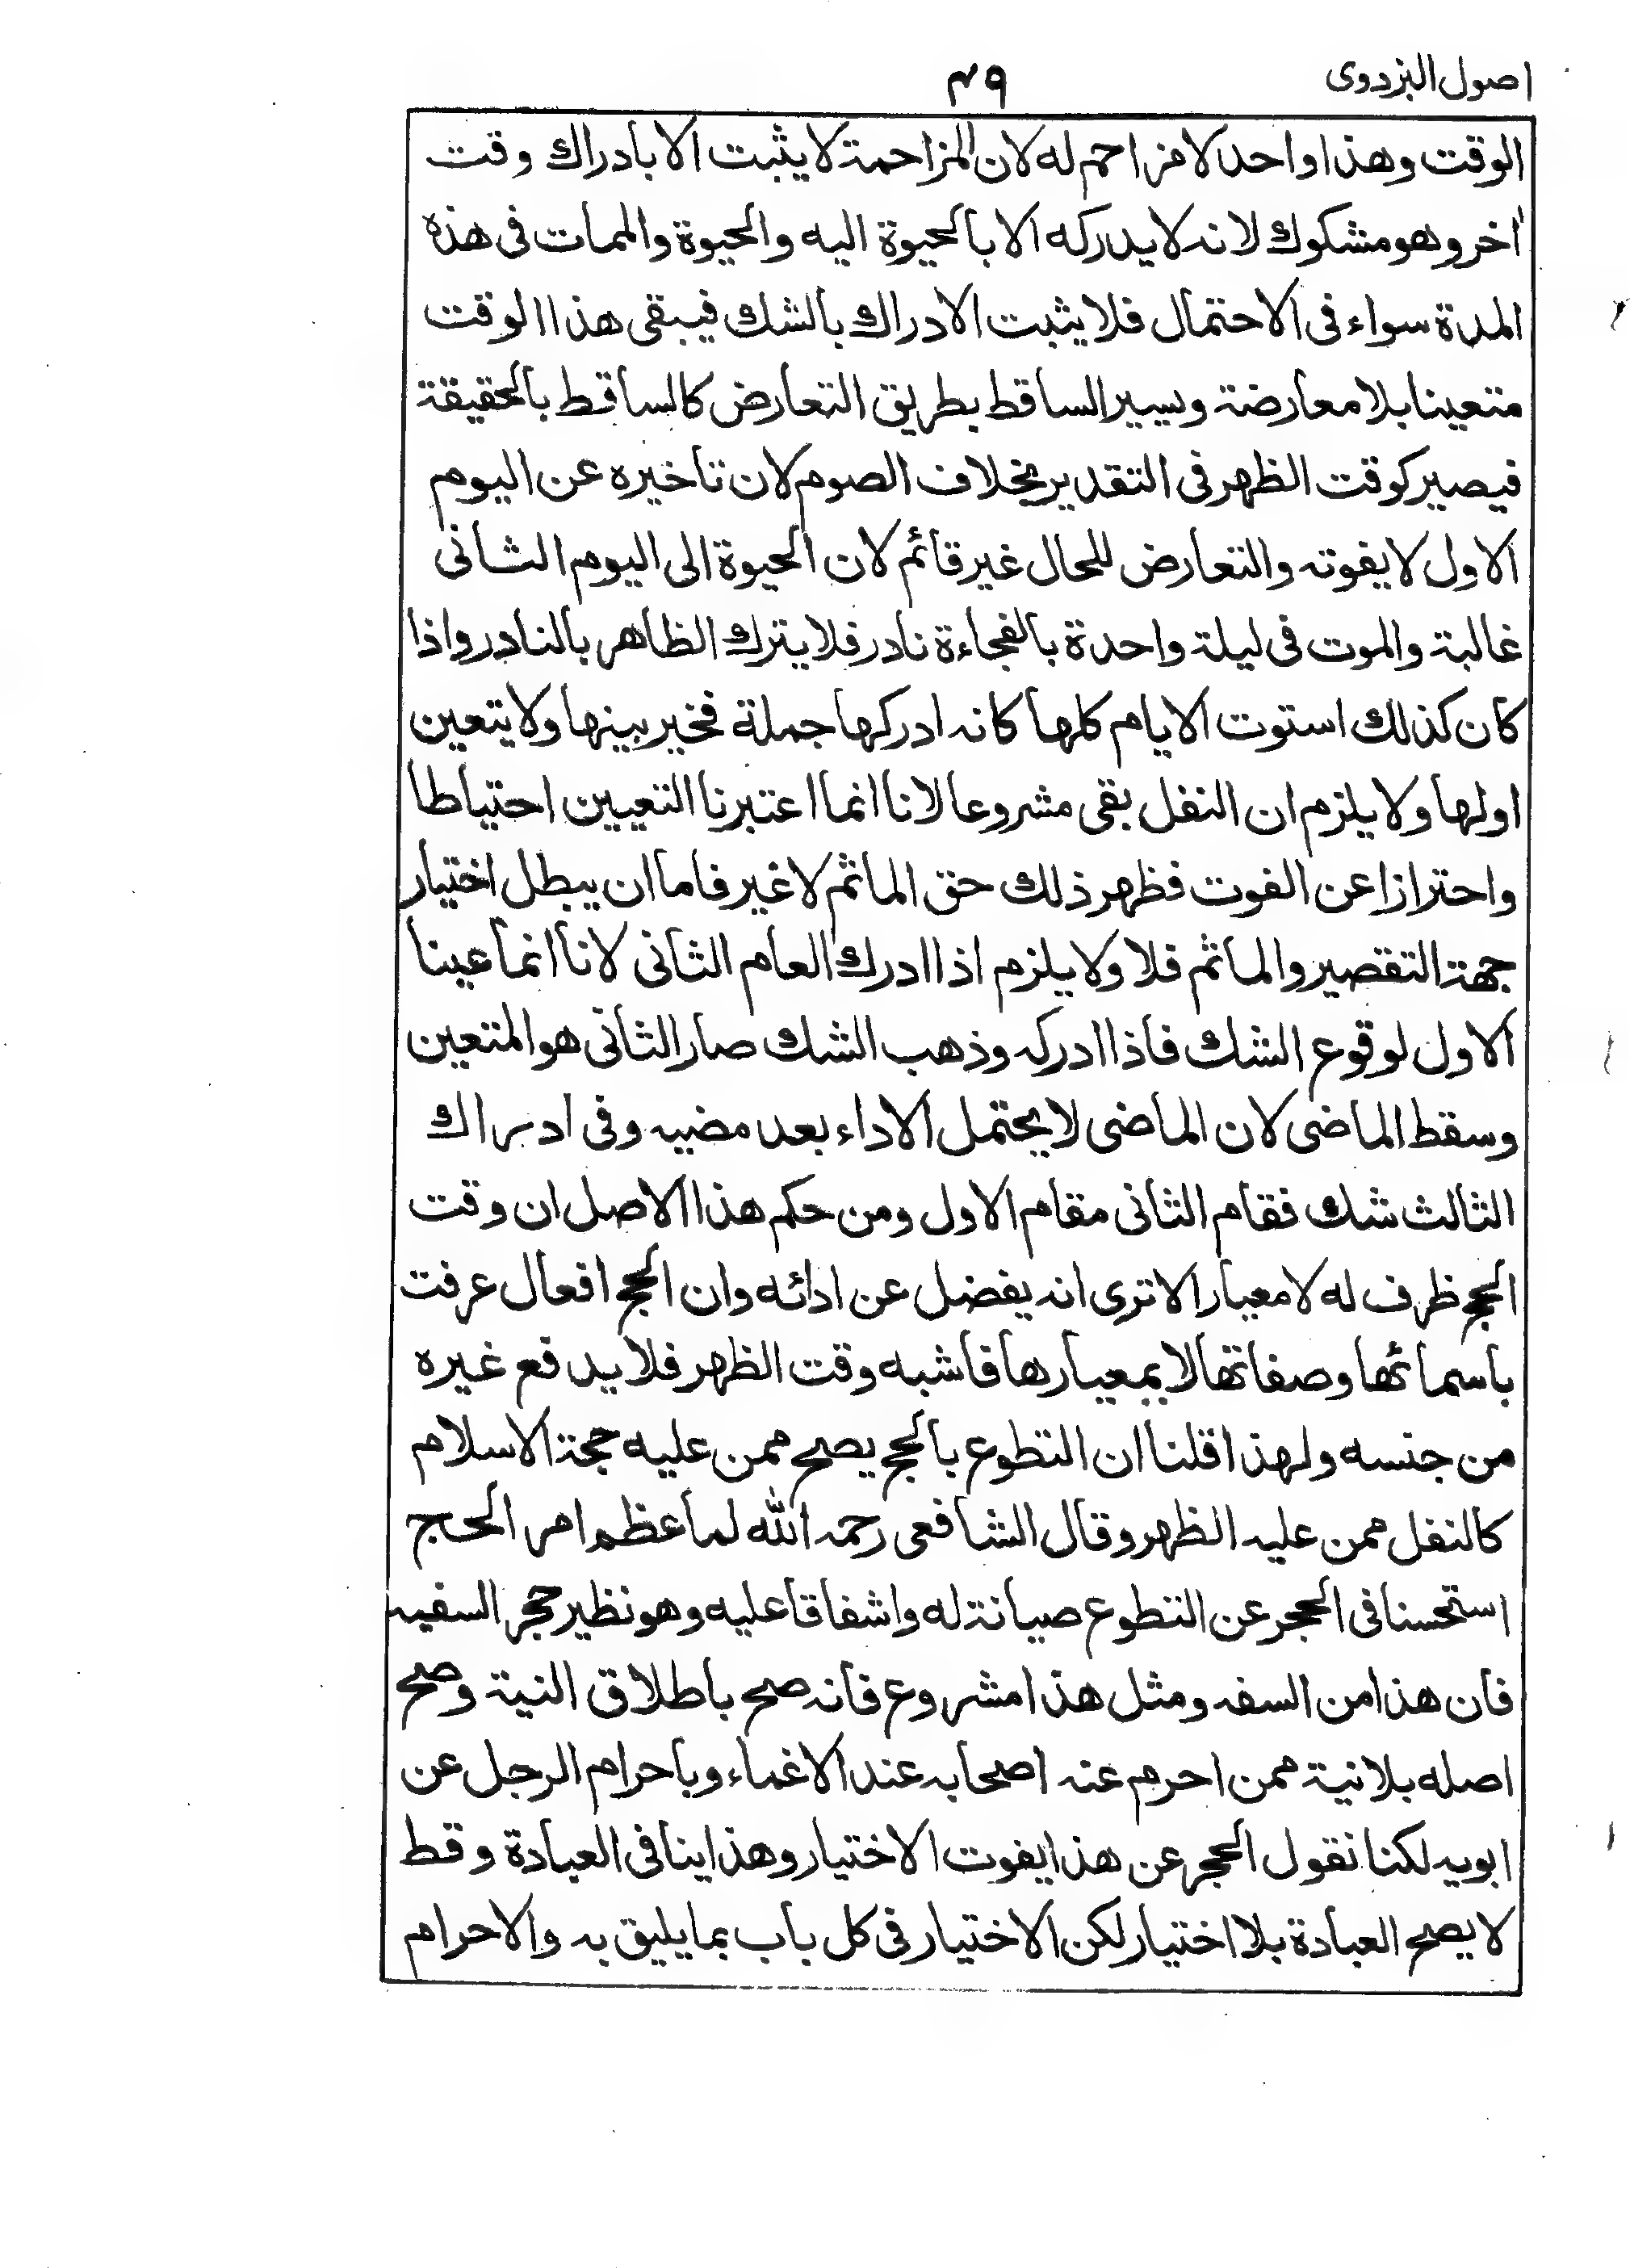 اصول البزدوى
۴۹
الوقت وهذا واحد لا مزاحم له لان المزاحمة لا يثبت الا بادراك وقت
اٰخر وهو مشكوك لانه لا يدركه الا بالحيوة اليه والحيوة والممات فى هذه
المدة سواء فى الاحتمال فلا يثبت الادراك بالشك فيبقى هذا الوقت
متعينا بلا معارضة ويسير الساقط بطريق التعارض كالساقط بالحقيقة
فيصير كوقت الظهر فى التقدير بخلاف الصوم لان تاخيره عن اليوم
الاول لا يفوته والتعارض للحال غير قائم لان الحيوة الى اليوم الثانى
غالبة والموت فى ليلة واحدة بالفجاءة نادر فلا يترك الظاهر بالنادر واذا
كان كذلك استوت الايام كلها كانه ادركها جملة فخير بينها ولا يتعين
اولها ولا يلزم ان النفل بقى مشروعا لانا انما اعتبرنا التعيين احتياطا
واحترازا عن الفوت فظهر ذلك حق الماثم لا غير فاما ان يبطل اختيار
جهة التقصير والماثم فلا ولا يلزم اذا ادرك العام الثانى لانا انما عينا
الاول لوقوع الشك فاذا ادركه وذهب الشك صار الثانى هو المتعين
وسقط الماضى لان الماضى لا يحتمل الاداء بعد مضيه وفى ادراك
الثالث شك فقام الثانى مقام الاول ومن حكم هذا الاصل ان وقت
الحج ظرف له لا معيار الا ترى انه يفضل عن ادائه وان الحج افعال عرفت
باسمائها وصفاتها لا بمعيارها فاشبه وقت الظهر فلا يدفع غيره
من جنسه ولهذا قلنا ان التطوع بالحج يصح ممن عليه حجة الاسلام
كالنفل ممن عليه الظهر وقال الشافعى رحمه الله لما عظم امر الحج
استحسنا فى الحجر عن التطوع صيانة له واشفاقا عليه وهو نظير حجر السفيه
فان هذا من السفه ومثل هذا مشروع فانه صح باطلاق النية وصح
اصله بلا نية ممن احرم عنه اصحابه عند الاغماء وباحرام الرجل عن
ابويه لكنا نقول الحجر عن هذا يفوت الاختيار وهذا ينافى العبادة وقط
لا يصح العبادة بلا اختيار لكن الاختيار فى كل باب بما يليق به والاحرام